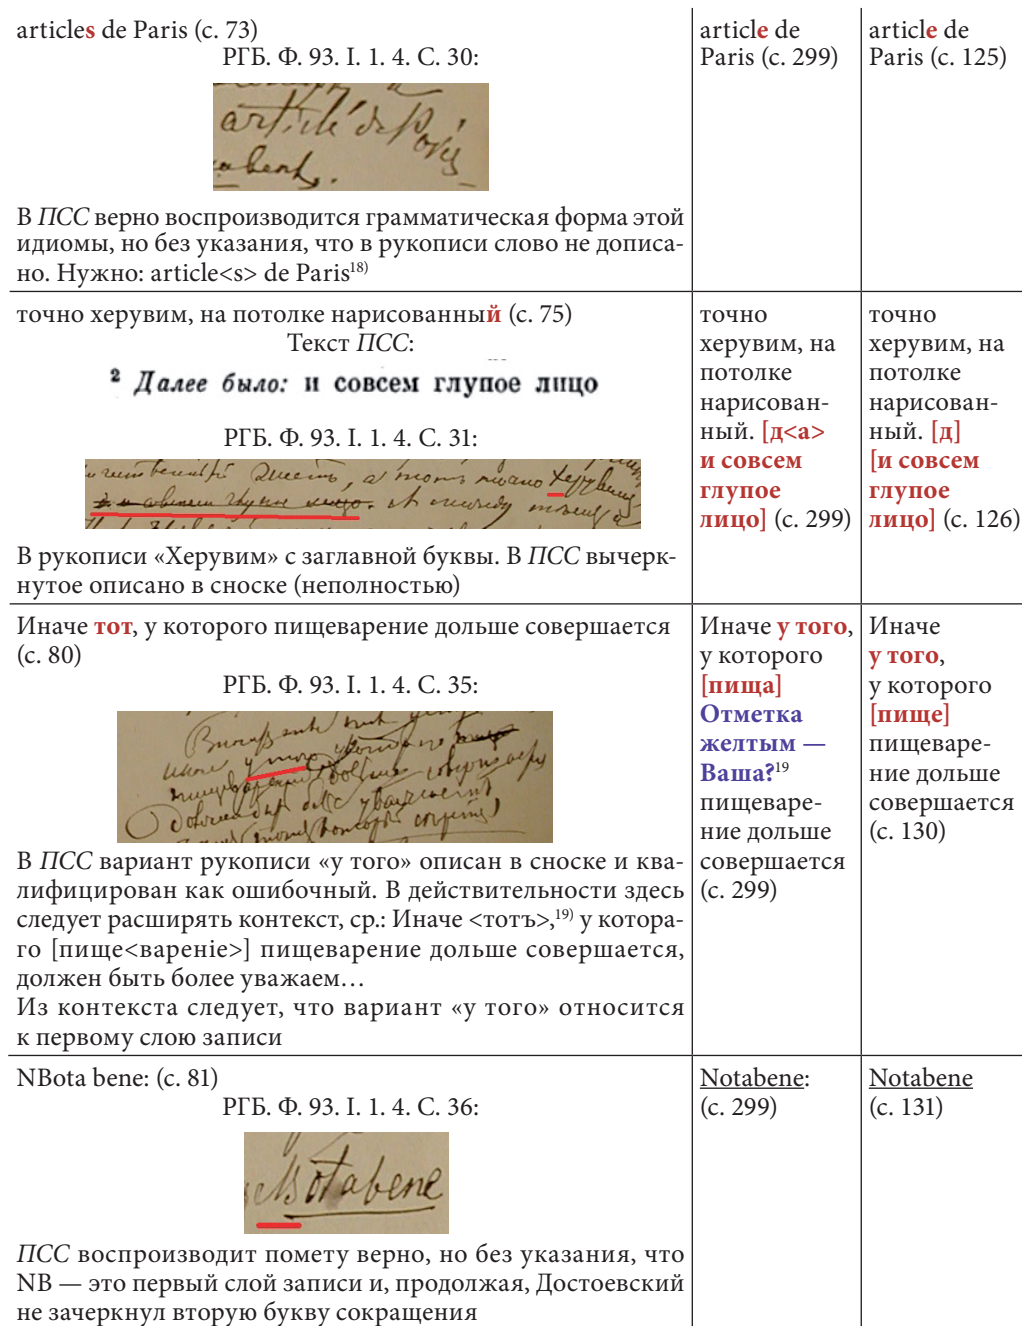 articles de Paris (с. 73)
РГБ. Ф. 93. I. 1. 4. С. 30:
article de Paris
В ПСС верно воспроизводится грамматическая форма этой
идиомы, но без указания, что в рукописи слово не дописа-
но. Нужно: article<s> de Paris18)
article de
Paris (с. 299)
article de
Paris (с. 125)
точно херувим, на потолке нарисованный (с. 75)
Текст ПСС:
2 Далее было: и совсем глупое лицо
РГБ. Ф. 93. I. 1. 4. С. 31:
В рукописи «Херувим» с заглавной буквы. В ПСС вычерк-
нутое описано в сноске (неполностью)
точно
херувим, на
потолке
нарисован-
ный. [д<а>
и совсем
глупое
лицо] (с. 299)
точно
херувим, на
потолке
нарисован-
ный. [д]
[и совсем
глупое
лицо] (с. 126)
Иначе тот, у которого пищеварение дольше совершается
(с. 80)
РГБ. Ф. 93. I. 1. 4. С. 35:
В ПСС вариант рукописи «у того» описан в сноске и ква-
лифицирован как ошибочный. В действительности здесь
следует расширять контекст, ср.: Иначе <тотъ>,19) у котора-
го [пище<вареніе>] пищеварение дольше совершается,
должен быть более уважаем…
Из контекста следует, что вариант «у того» относится
к первому слою записи
Иначе у того,
у которого
[пища]
Отметка
желтым —
Ваша?19
пищеваре-
ние дольше
совершается
(с. 299)
Иначе
у того,
у которого
[пище]
пищеваре-
ние дольше
совершается
(с. 130)
NBota bene: (с. 81)
РГБ. Ф. 93. I. 1. 4. С. 36:
NBotabene
ПСС воспроизводит помету верно, но без указания, что
NB — это первый слой записи и, продолжая, Достоевский
не зачеркнул вторую букву сокращения
Notabene:
(с. 299)
Notabene
(с. 131)